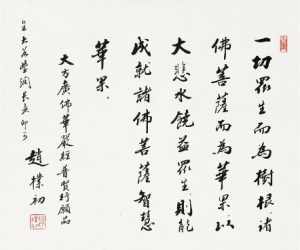 一切眾生而為樹根諸
佛菩薩而為華果以
大悲水饒益眾生則能
成就諸佛菩薩智慧
華果
大方廣佛華嚴經普賢行願品
趙樸初